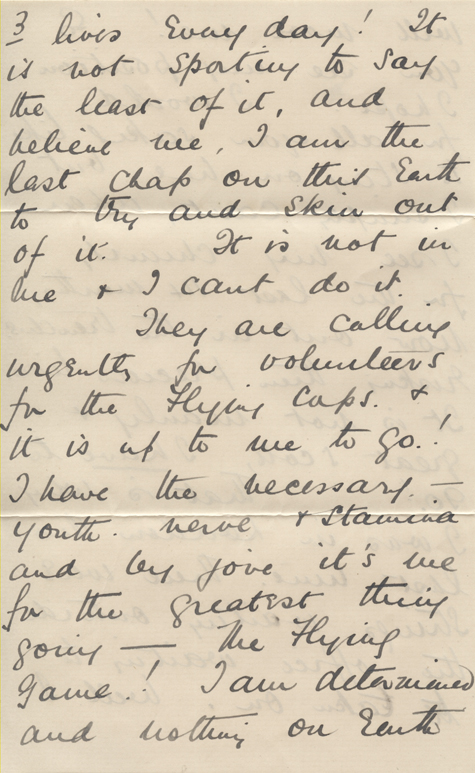 3 lives Every day! It
is not Sporting to Say
the least of it, and
believe me, I am the
last chap on this Earth
to try and Skin out
of it. It is not in
me & I cant do it.
They are calling
urgently for volunteers
for the Flying Corps. &
it is up to me to go.!
I have the necessary. —
youth. nerve & Stamina
and by jove it's me
for the greatest thing
going — the Flying
Game.! I am determined
and nothing on Earth